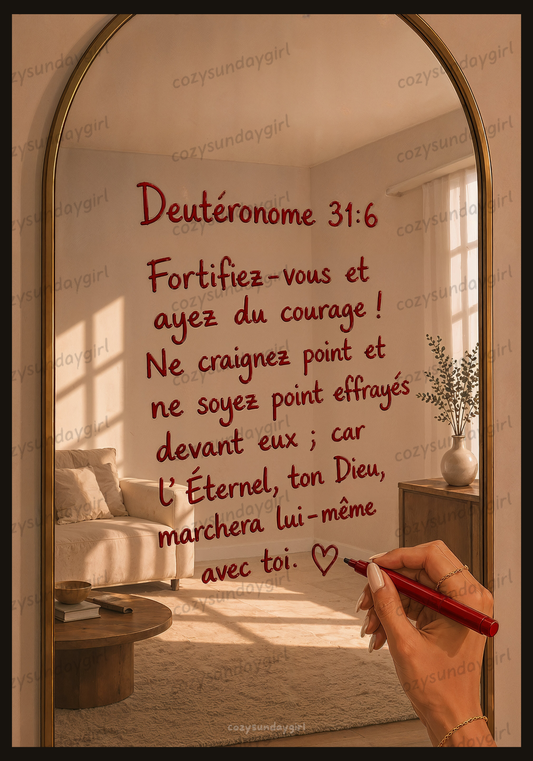 Deutéronome 31:6
Fortifiez-vous et
ayez du courage !
Ne craignez point et
ne soyez point effrayés
devant eux ; car
l'Éternel, ton Dieu,
marchera lui-même
avec toi. ♡
cozysundaygirl